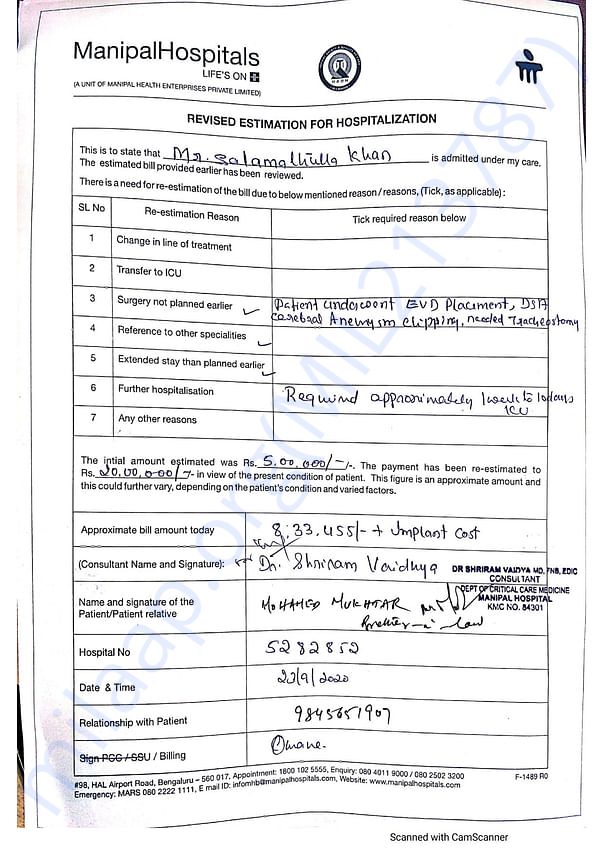 ManipalHospitals
LIFE'S ON
(A UNIT OF MANIPAL HEALTH ENTERPRISES PRIVATE LIMITED)
REVISED ESTIMATION FOR HOSPITALIZATION
This is to state that Mr. Salamathulla Khan is admitted under my care.
The estimated bill provided earlier has been reviewed.
There is a need for re-estimation of the bill due to below mentioned reason / reasons, (Tick, as applicable) :
SL No Re-estimation Reason Tick required reason below
1 Change in line of treatment
2 Transfer to ICU
3 Surgery not planned earlier ✓ Patient underwent EVD Placement, DSA
cerebral Aneurysm clipping, needed Tracheostomy
4 Reference to other specialities ✓
5 Extended stay than planned earlier ✓
6 Further hospitalisation Required approximately 1 week to 10 days
ICU
7 Any other reasons
The intial amount estimated was Rs. 5,00,000/-/-. The payment has been re-estimated to
Rs. 20,00,000/-/- in view of the present condition of patient. This figure is an approximate amount and
this could further vary, depending on the patient's condition and varied factors.
Approximate bill amount today 8,33,455/- + Implant Cost
(Consultant Name and Signature): Dr. Shriram Vaidhya
DR SHRIRAM VAIDYA MD, FNB, EDIC
CONSULTANT
DEPT OF CRITICAL CARE MEDICINE
MANIPAL HOSPITAL
KMC NO. 84301
Name and signature of the
Patient/Patient relative
MOHAMED MUKHTAR
Brother-in-law
Hospital No 5282852
Date & Time 23/9/2020
Relationship with Patient 9845651907
Sign PCC / SSU / Billing
#98, HAL Airport Road, Bengaluru – 560 017. Appointment: 1800 102 5555, Enquiry: 080 4011 9000 / 080 2502 3200
Emergency: MARS 080 2222 1111, E mail ID: infomhb@manipalhospitals.com, Website: www.manipalhospitals.com
F-1489 R0
milaap.org(MIL213787)
Scanned with CamScanner